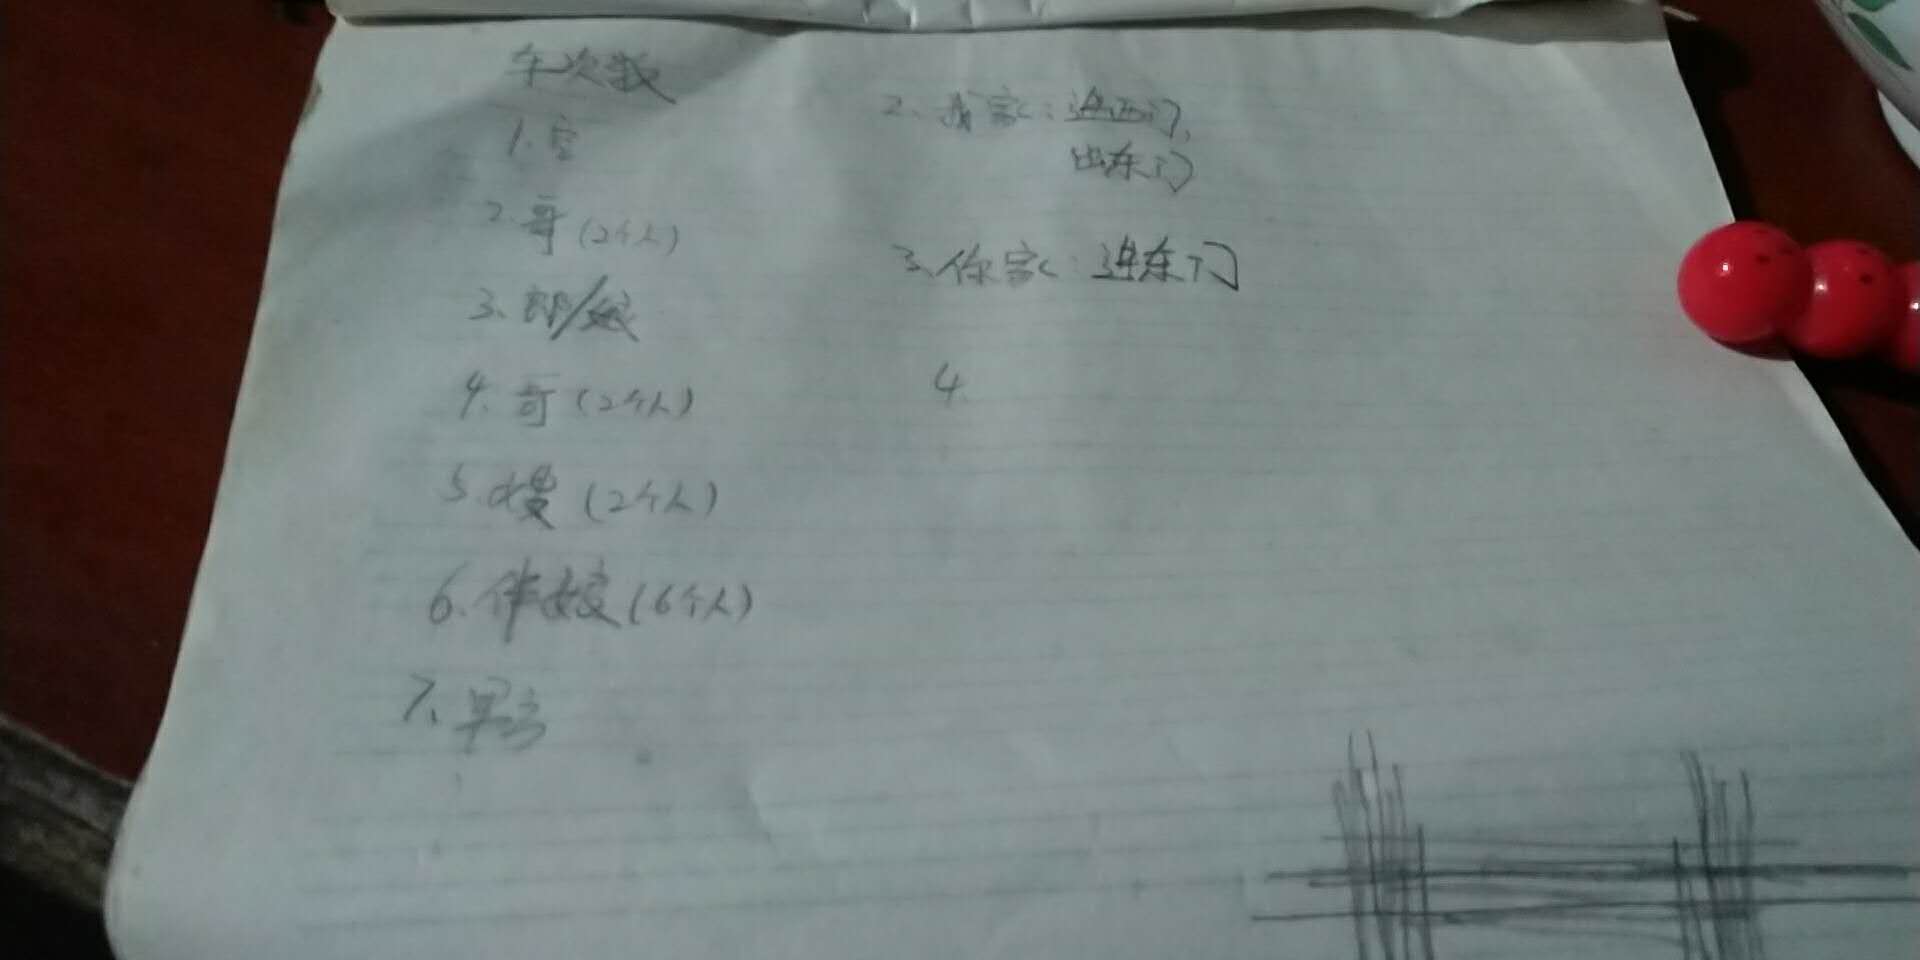 车次数
1.空
2.哥(2个人)
3.郎/娘
4.哥(2个人)
5.嫂(2个人)
6.伴娘(6个人)
7.
2.我家:进西门,
出东门
3.你家:进东门
4.